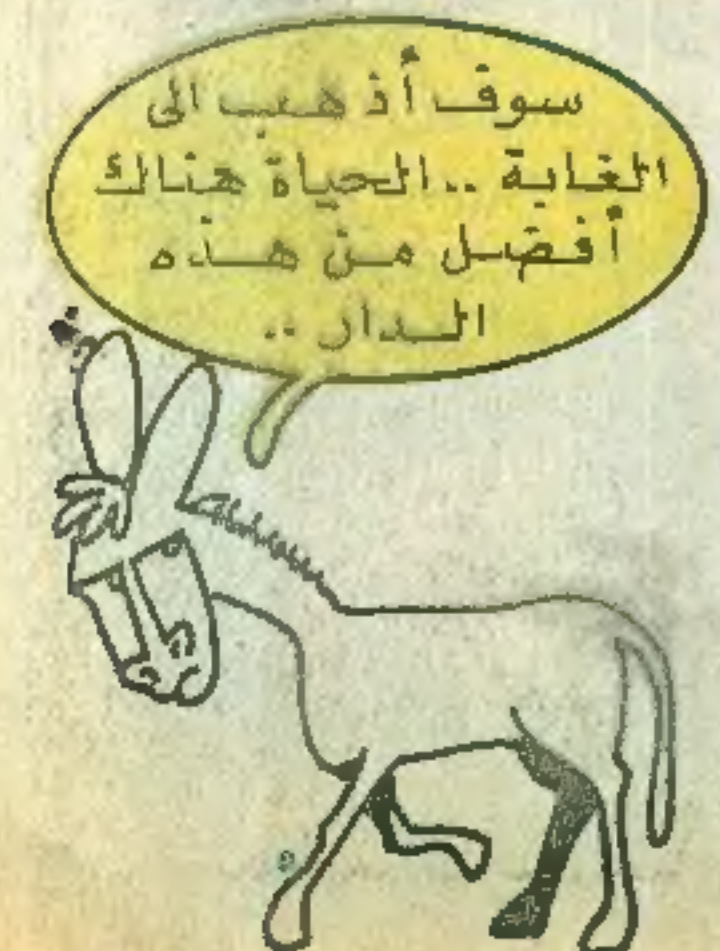 سوف أذهب الى
الغابة .. الحياة هناك
أفضل من هذه
الدار ..